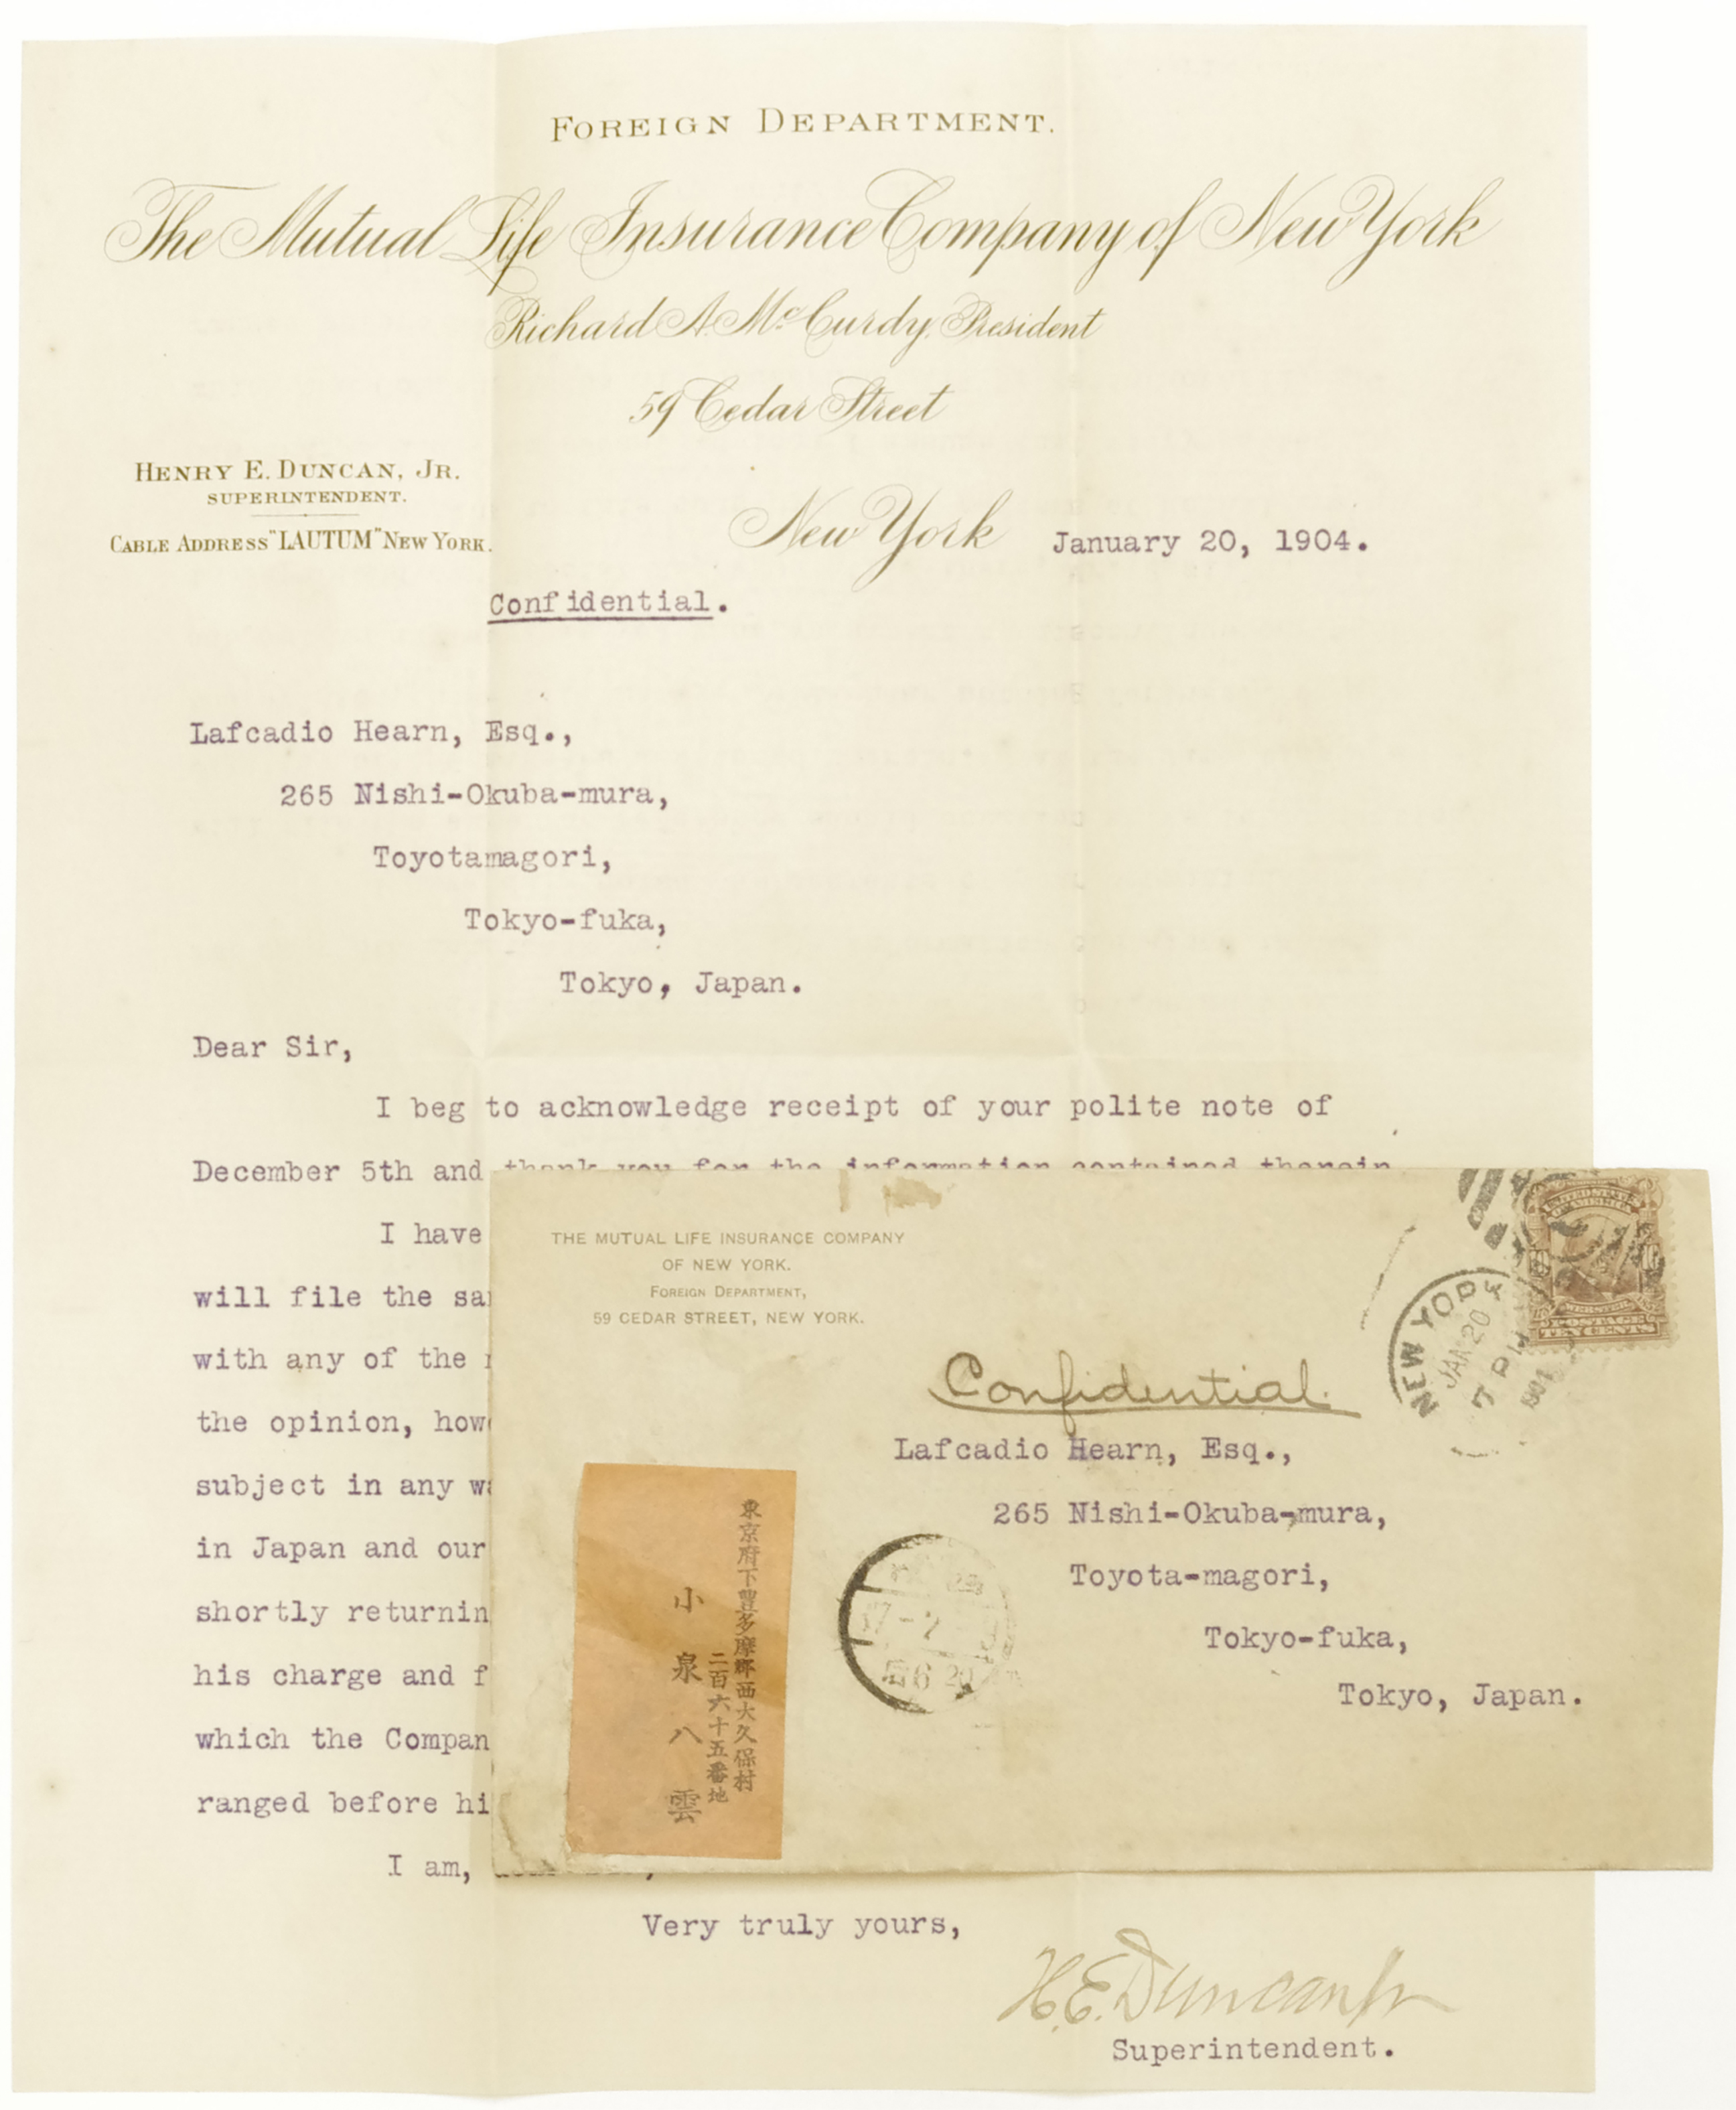 FOREIGN DEPARTMENT.
The Mutual Life Insurance Company of New York
Richard A. McCurdy, President
59 Cedar Street
HENRY E. DUNCAN, JR.
SUPERINTENDENT.
CABLE ADDRESS "LAUTUM" NEW YORK.
New York January 20, 1904.
Confidential.
Lafcadio Hearn, Esq.,
265 Nishi-Okuba-mura,
Toyotamagori,
Tokyo-fuka,
Tokyo, Japan.
Dear Sir,
I beg to acknowledge receipt of your polite note of
December 5th and thank you for the information contained therein
I have
will file the
with any of the
the opinion,
subject in any
in Japan and our
shortly
his charge and
which the
ranged before
I am,
Very truly yours,
H.E. Duncan Jr
Superintendent.
THE MUTUAL LIFE INSURANCE COMPANY
OF NEW YORK.
FOREIGN DEPARTMENT,
59 CEDAR STREET, NEW YORK.
UNITED STATES
OF AMERICA
WEBSTER
POSTAGE
TEN CENTS
NEW YORK
JAN 20
7 PM
1904
Confidential.
Lafcadio Hearn, Esq.,
265 Nishi-Okuba-mura,
Toyota-magori,
Tokyo-fuka,
Tokyo, Japan.
東京府下豊多摩郡西大久保村
二百六十五番地
小泉八雲